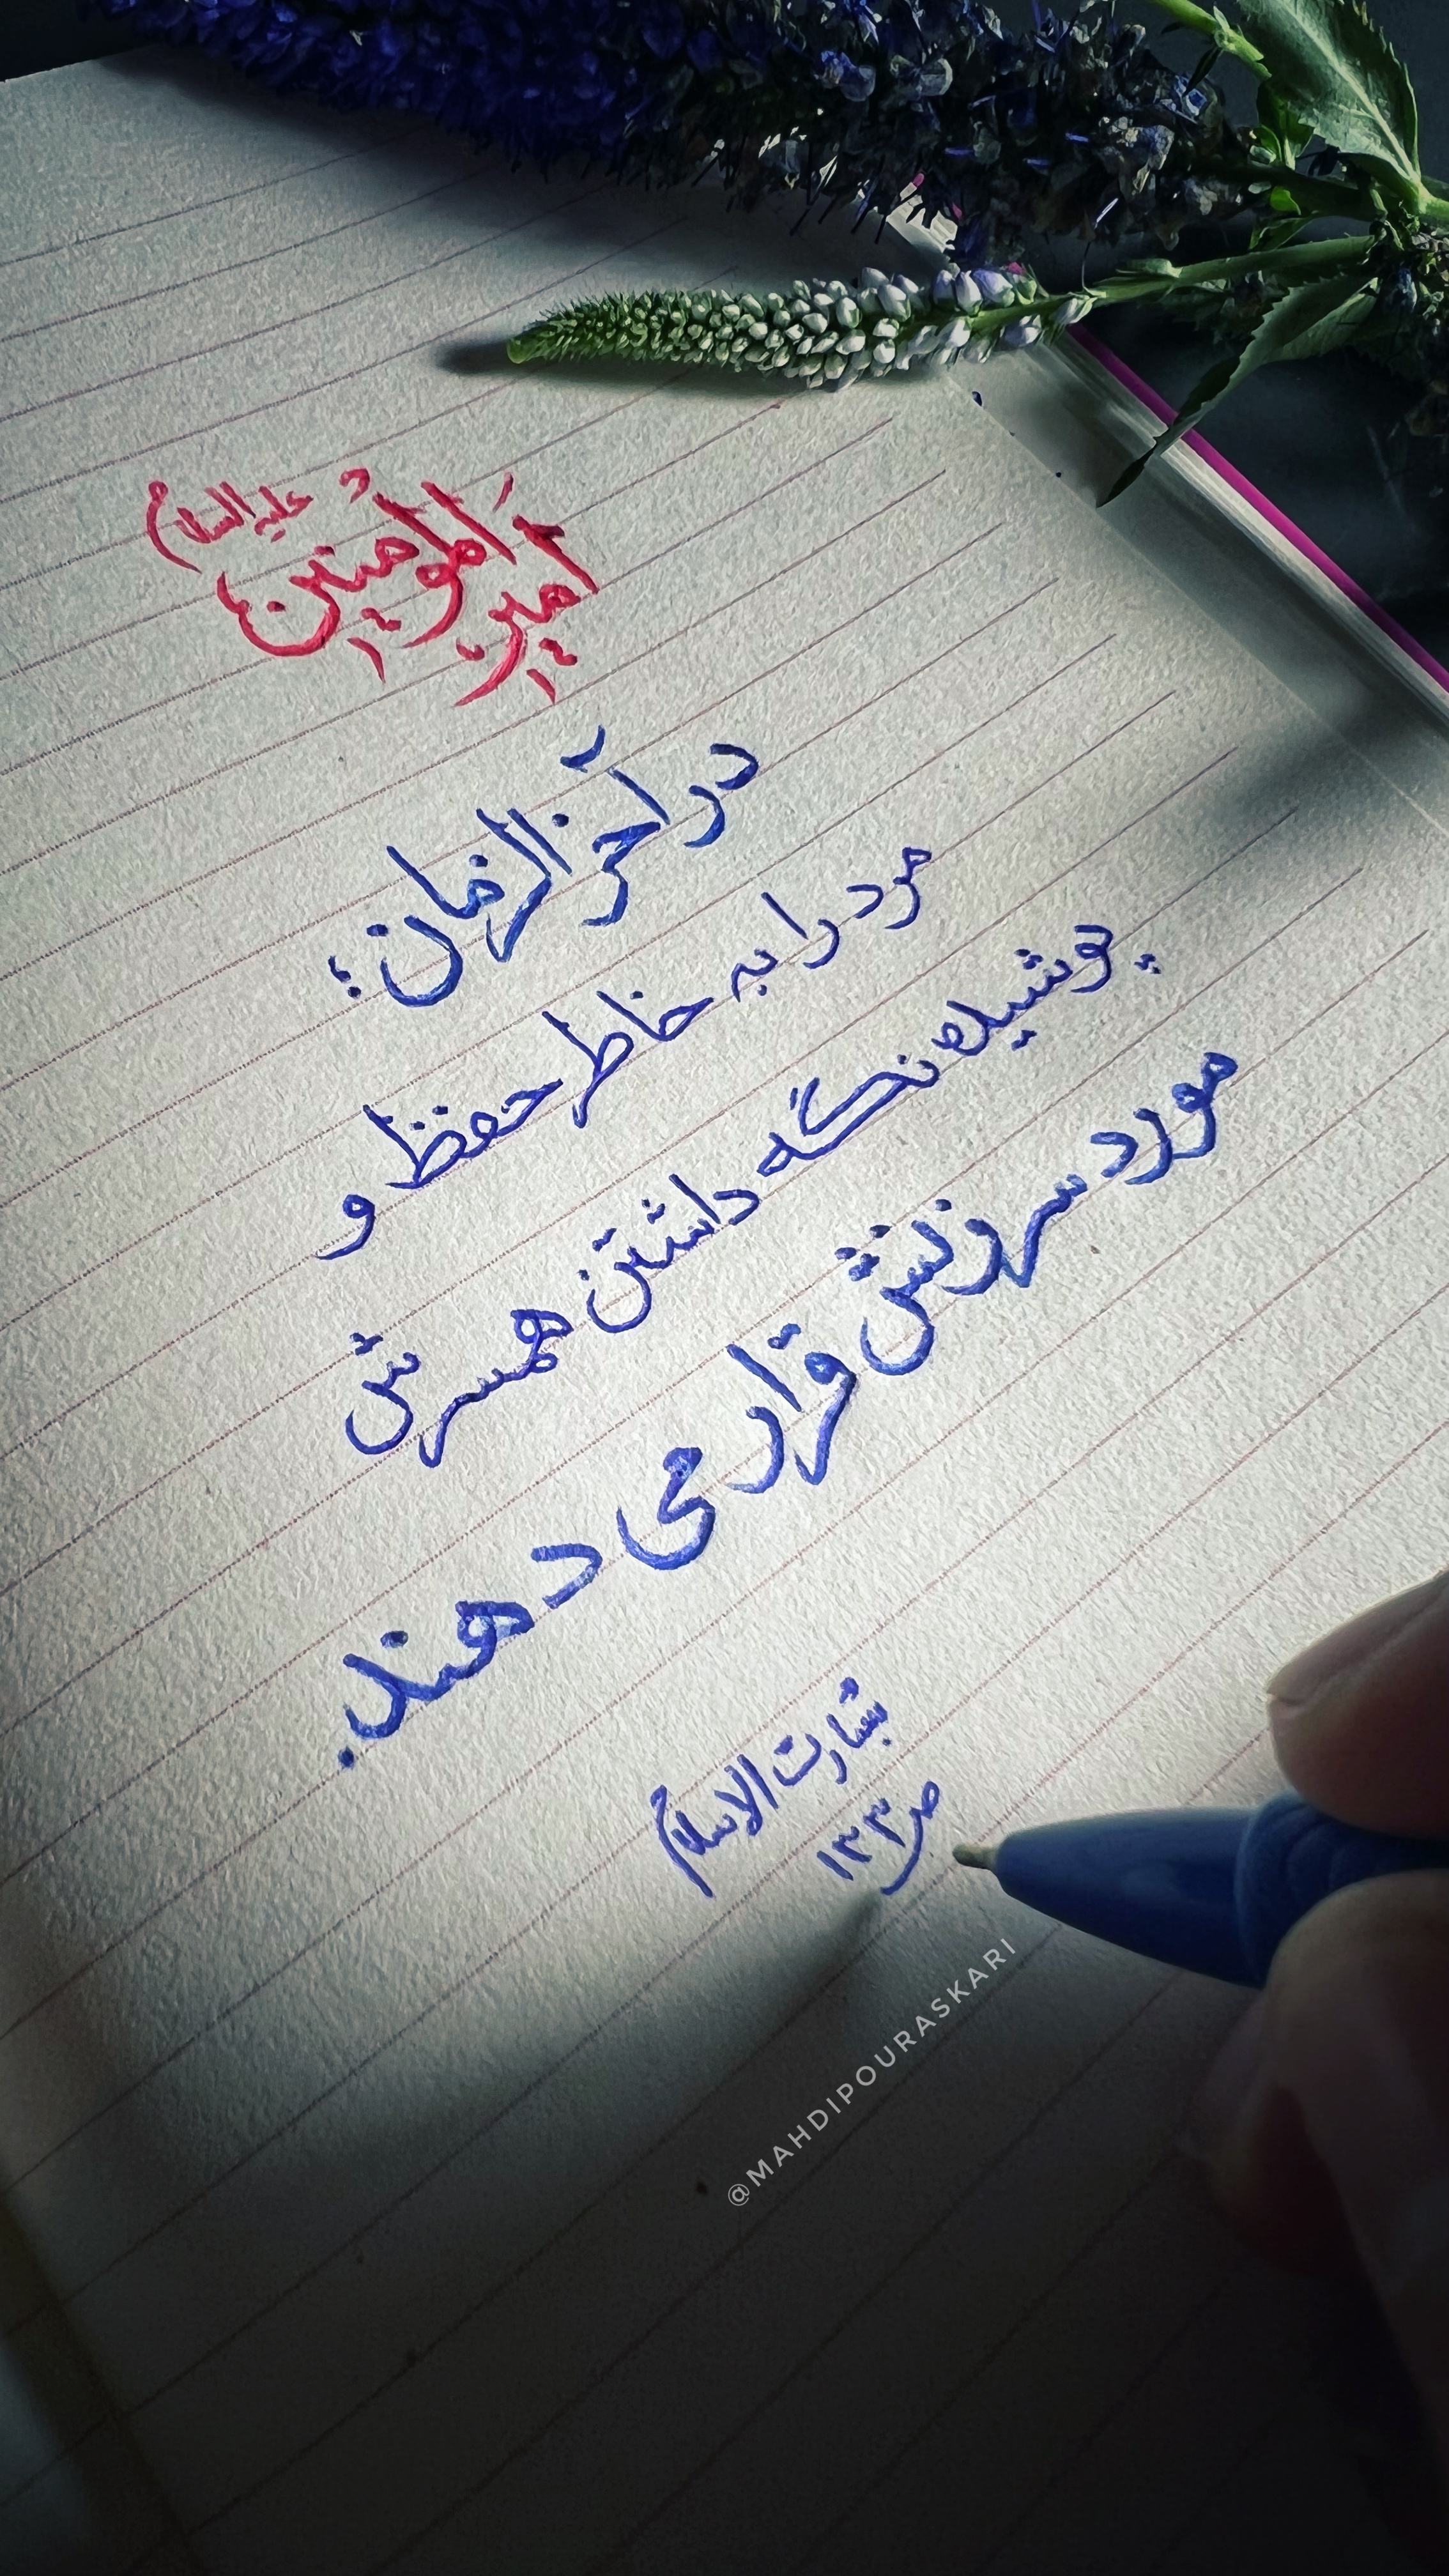 امیرَ المؤمنین علیه السلام
در آخر الزمان؛
مرد را به خاطر حفظ و
پوشیده نگه داشتن همسرش
مورد سرزنش قرار می دهند.
بشارت الاسلام
ص ۱۳۳
@MAHDIPOURASKARI